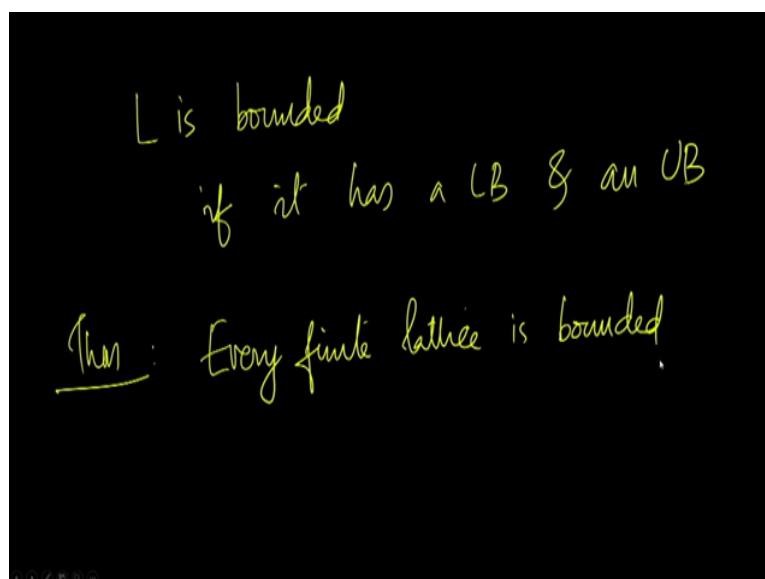 L is bounded
if it has a LB & an UB
Thm : Every finite lattice is bounded